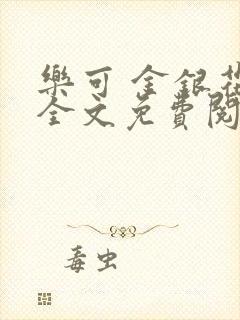 樂可 金銀花
全文免費閱
毒虫